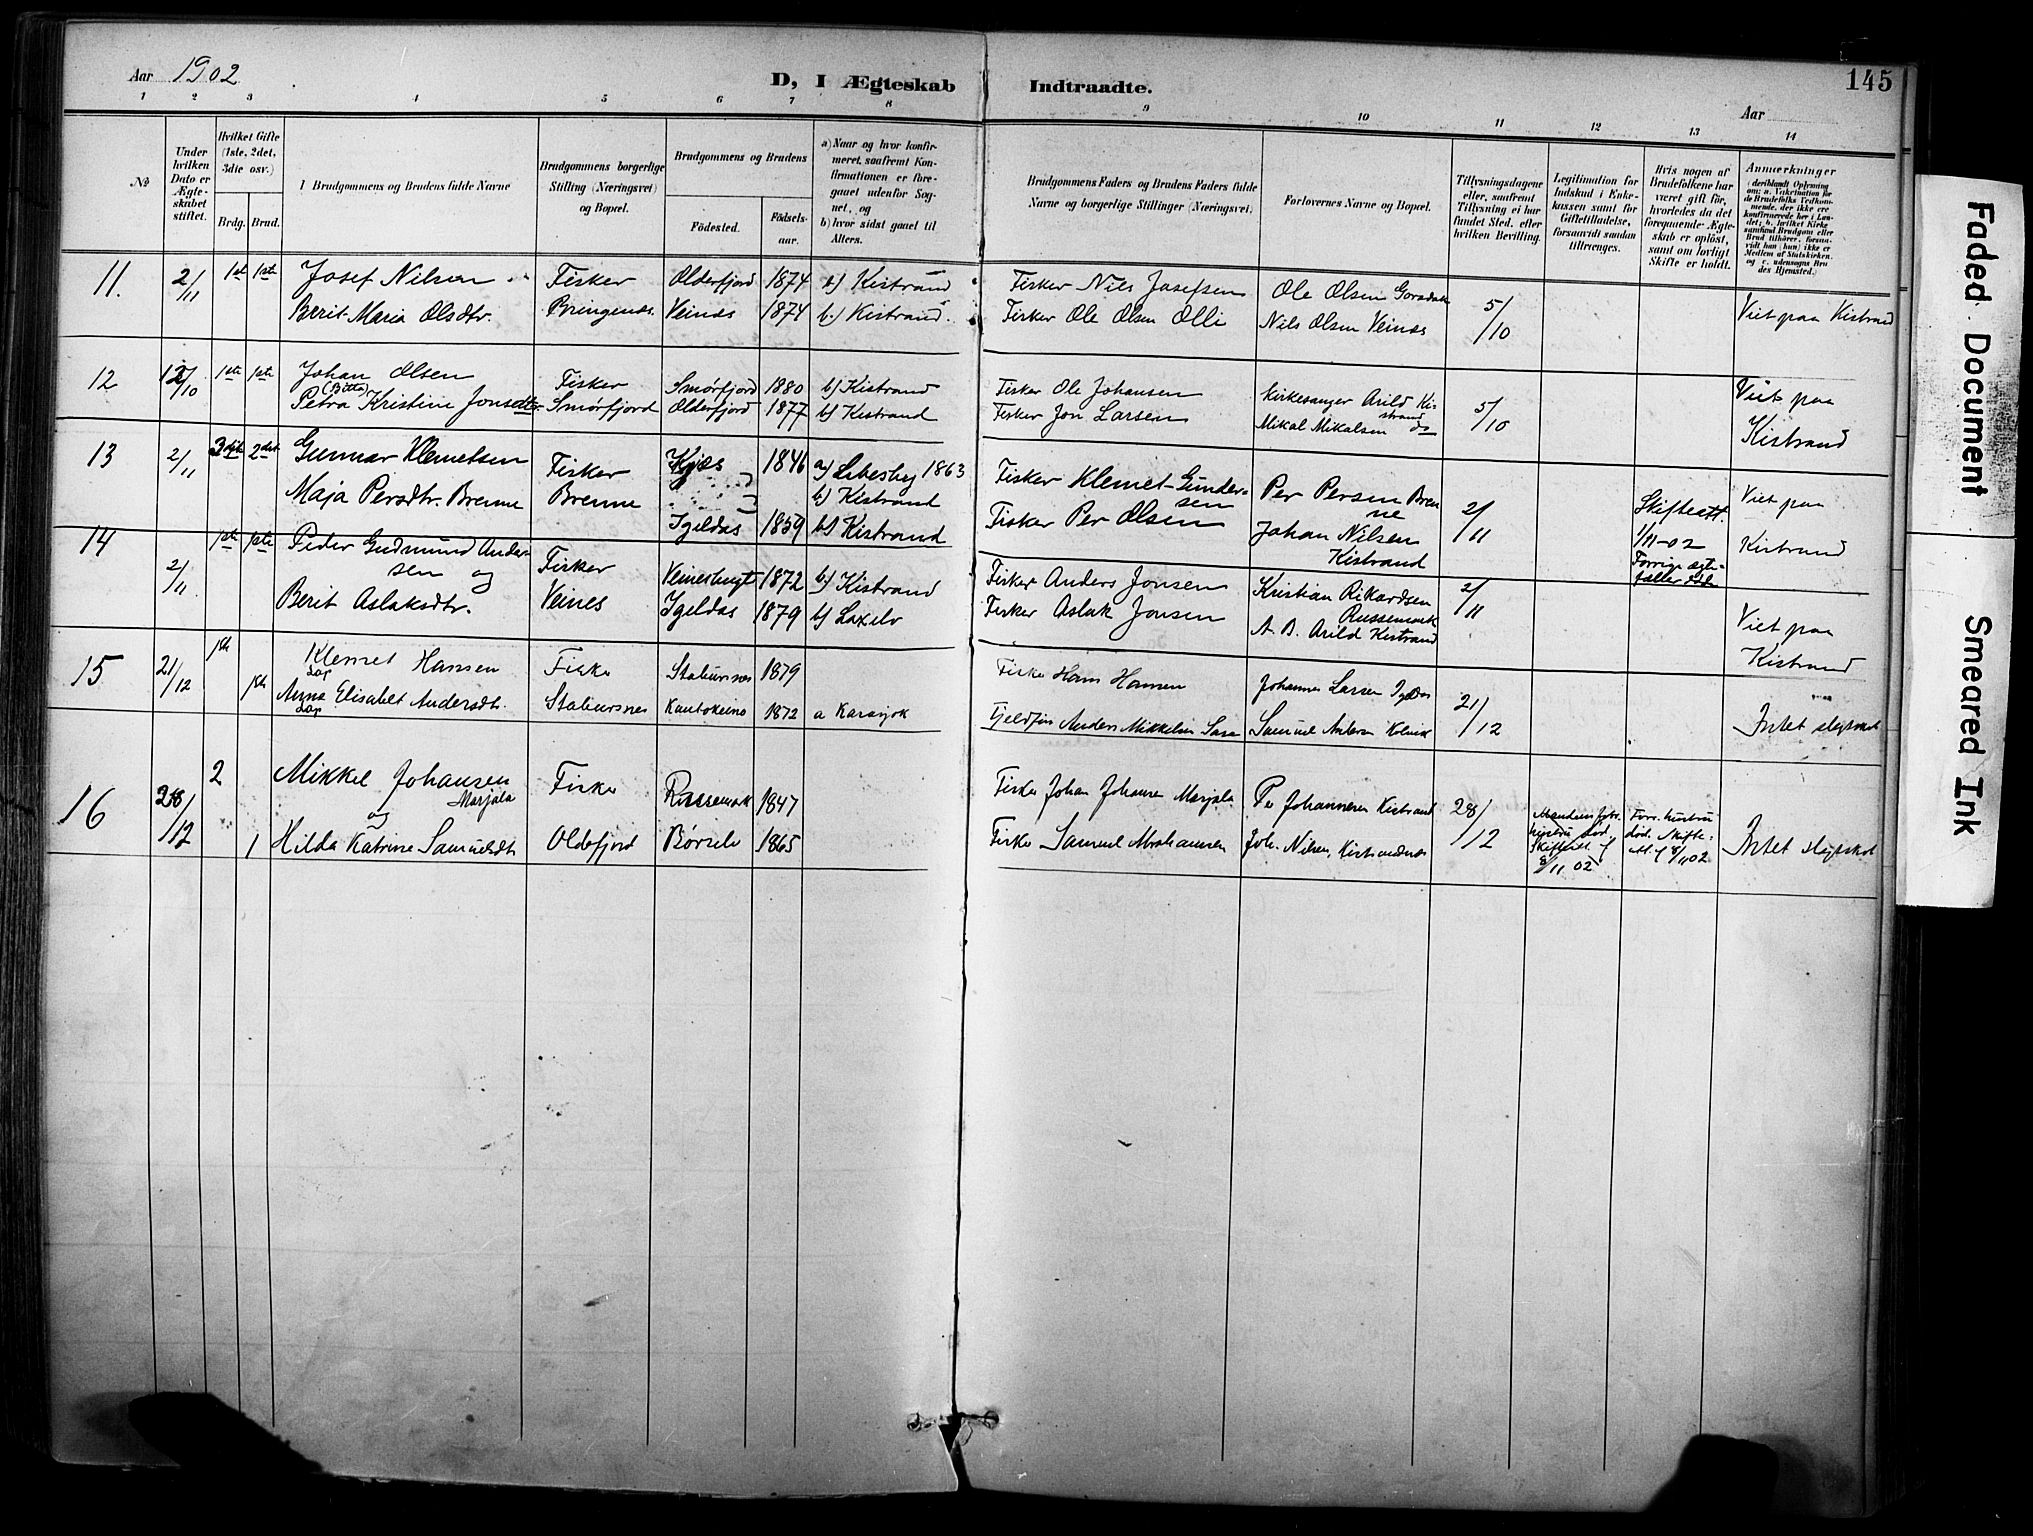 Aar 1902
D, I Ægteskab Indtraadte.
145
Aar
1 2 3 4 5 6 7 8 9 10 11 12 13 14
№
Under hvilken Dato er Ægteskabet stiftet.
Hvilket Gifte (1ste, 2det, 3die osv.)
Brdg. Brud.
Brudgommens og Brudens fulde Navne
Brudgommens borgerlige Stilling (Næringsvei) og Bopæl.
Brudgommens og Brudens
Fødested. Fødsels-aar.
a) Naar og hvor konfirmeret, saafremt Konfirmationen er foregaaet udenfor Sognet, og
b) hvor sidst gaaet til Alters.
Brudgommens Faders og Brudens Faders fulde Navne og borgerlige Stillinger (Næringsvei.
Forlovernes Navne og Bopæl.
Tillysningsdagene eller, saafremt Tillysning ei har fundet Sted, efter hvilken Bevilling.
Legitimation for Indskud i Enkekassen samt for Giftetilladelse, forsaavidt saadan tiltrænges.
Hvis nogen af Brudefolkene har været gift før, hvorledes da det foregaaende Ægteskab er opløst, samt om lovligt Skifte er holdt.
Anmærkninger
11. 2/11 1st 1ste Josef Nilsen Fisker Olderfjord 1874 b) Kistrand Fisker Nils Josefsen Ole Olsen 5/10 Viet paa Kistrand
Berit Maria Olsdtr. Veines 1874 b.) Kistrand. Fisker Ole Olsen Olli Nils Olsen Veines
12 12/10 1ste 1ste Johan Olsen Fisker Smørfjord 1880 b) Kistrand Fisker Ole Johansen Kirkesanger Arild Kistrand 5/10 Viet paa
(Bitta)
Petra Kristine Jonsdtr. Smørfjord Olderfjord 1877 b) Kistrand Fisker Jon Larsen Mikal Mikalsen do Kistrand
13 2/11 3die 2det Gunnar Klemetsen Fisker Kjæs 1846 a) Lebesby 1863 Fisker Klemet Gundersen Per Persen Brenne 2/11 Skifteatt. Viet paa
b) Kistrand
Maja Persdtr. Brenne Brenne Igeldas 1859 b) Kistrand Fisker Per Olsen Johan Nilsen Kistrand 1/11-02 Kistrand
14 2/11 1ste 1ste Peder Gudmund Andersen og Fisker Veinesbugt 1872 b) Kistrand Fisker Anders Jonsen Kristian Rikardsen Russemark 2/11 Viet paa
Berit Aslaksdtr. Veines Igeldas 1879 b) Laxelv Fisker Aslak Jonsen A. B. Arild Kistrand Kistrand
15 21/12 1ste Klemet Hansen Fisker Stabursnes 1879 Fisker Hans Hansen Johannes Larsen Igeldas 21/12
Lap
1ste Anna Elisabet Andersdt. Stabursnes Kautokeino 1872 a Karasjok Anders Mikkelsen Sara Samuel Andersen Kolvik Intet slegtskab
Lap
16 28/12 2 Mikkel Johansen Marjala og Fisker Russemark 1847 Fisker Johan Johansen Marjala Per Johannesen Kistrand 28/12 Intet slegtskab
1 Hilda Katrine Samuelsdt Oldefjord Børselv 1865 Fisker Samuel Abrahamsen Joh. Nilsen, Kistrandnes
Skifteatt. f 8/11 02
Forr. hustru død. Skifteatt. f 8/11 02
Faded Document
Smeared Ink